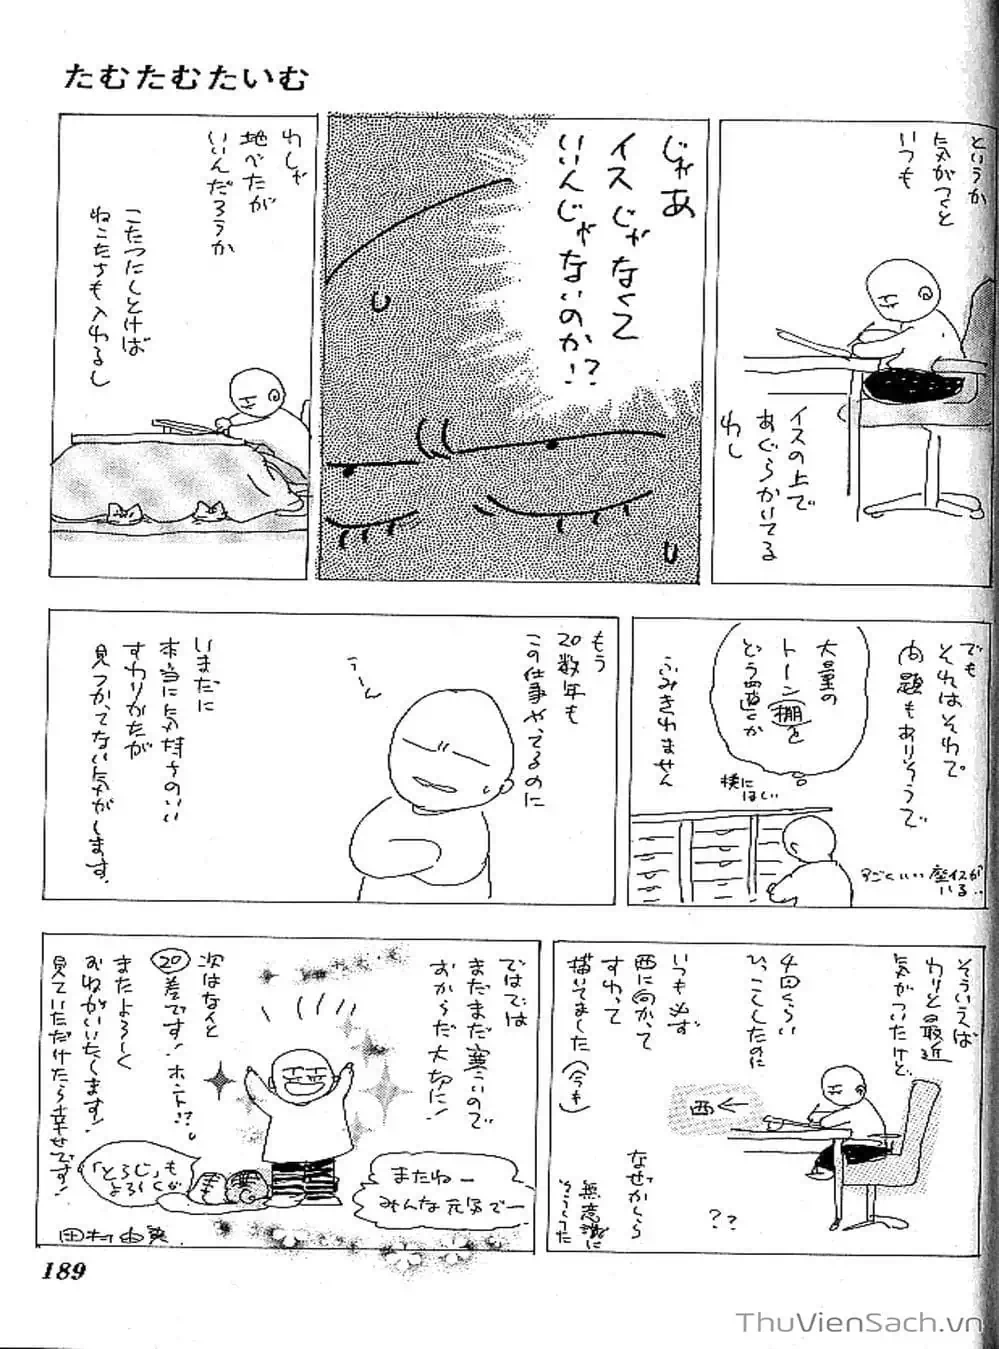 たむたむたいむ
というか
気がつくと
いつも
イスの上で
あぐらかいてる
わし
じゃあ
イスじゃなくて
いいんじゃないのか!?
わしゃ
地べたが
いいんだろうか
こたつにしとけば
ねこたちも入れるし
でも
それはそれで
問題もありそうで
大量の
トーン棚を
どう置くか
ふみきれません
横に
ほしい
すごくいい座イスが
いる…
もう
20数年も
この仕事やってるのに
うーん
いまだに
本当に気持ちのいい
すわりかたが
見つかってない気がします。
そういえば
わりと最近
気がついたけど
4回くらい
ひっこししたのに
いつも必ず
西に向かって
すわって
描いてました(今も)
西←
なぜかしら
??
無意識に
そうしてた
ではでは
まだまだ寒いので
おからだ大切に!
次はなんと
20巻です!ホント!?
またよろしく
おねがいいたします!
見ていただけたら幸せです!
「とろじ」も
よろしくな
またねー
みんな元気でー
田村由美
189
ThuVienSach.vn